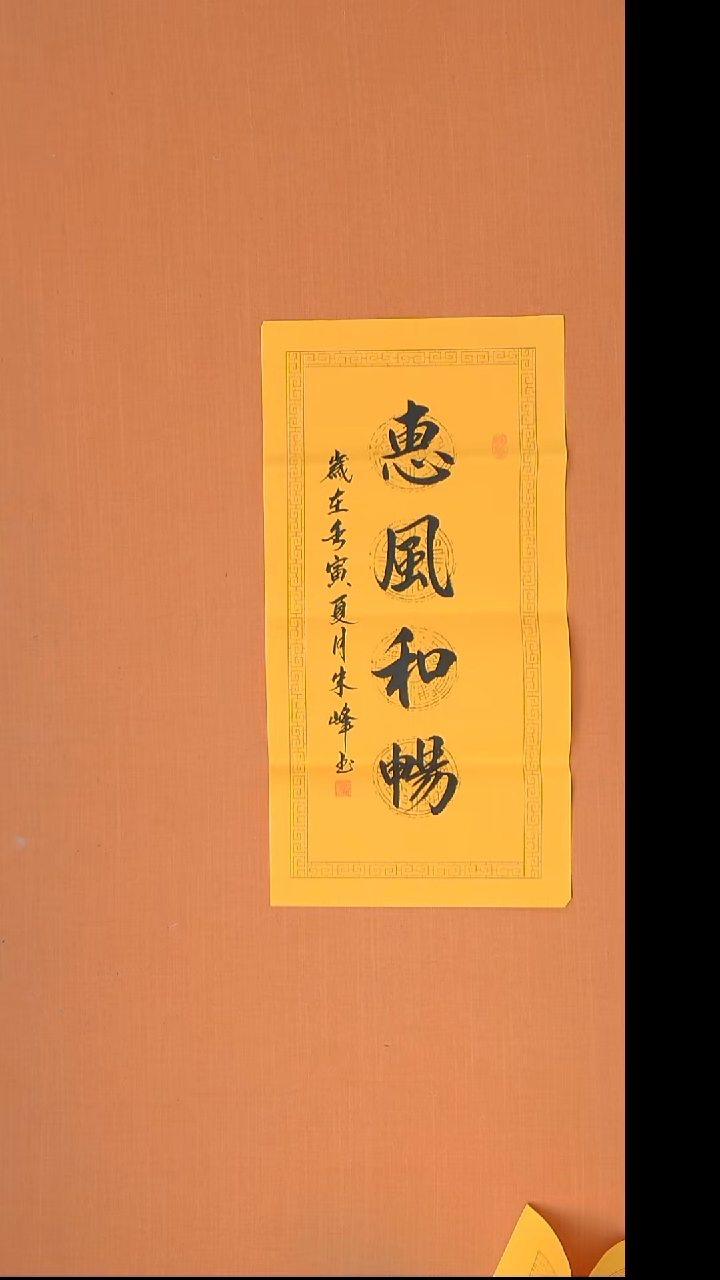 惠風和暢
歲在壬寅夏月朱峰书